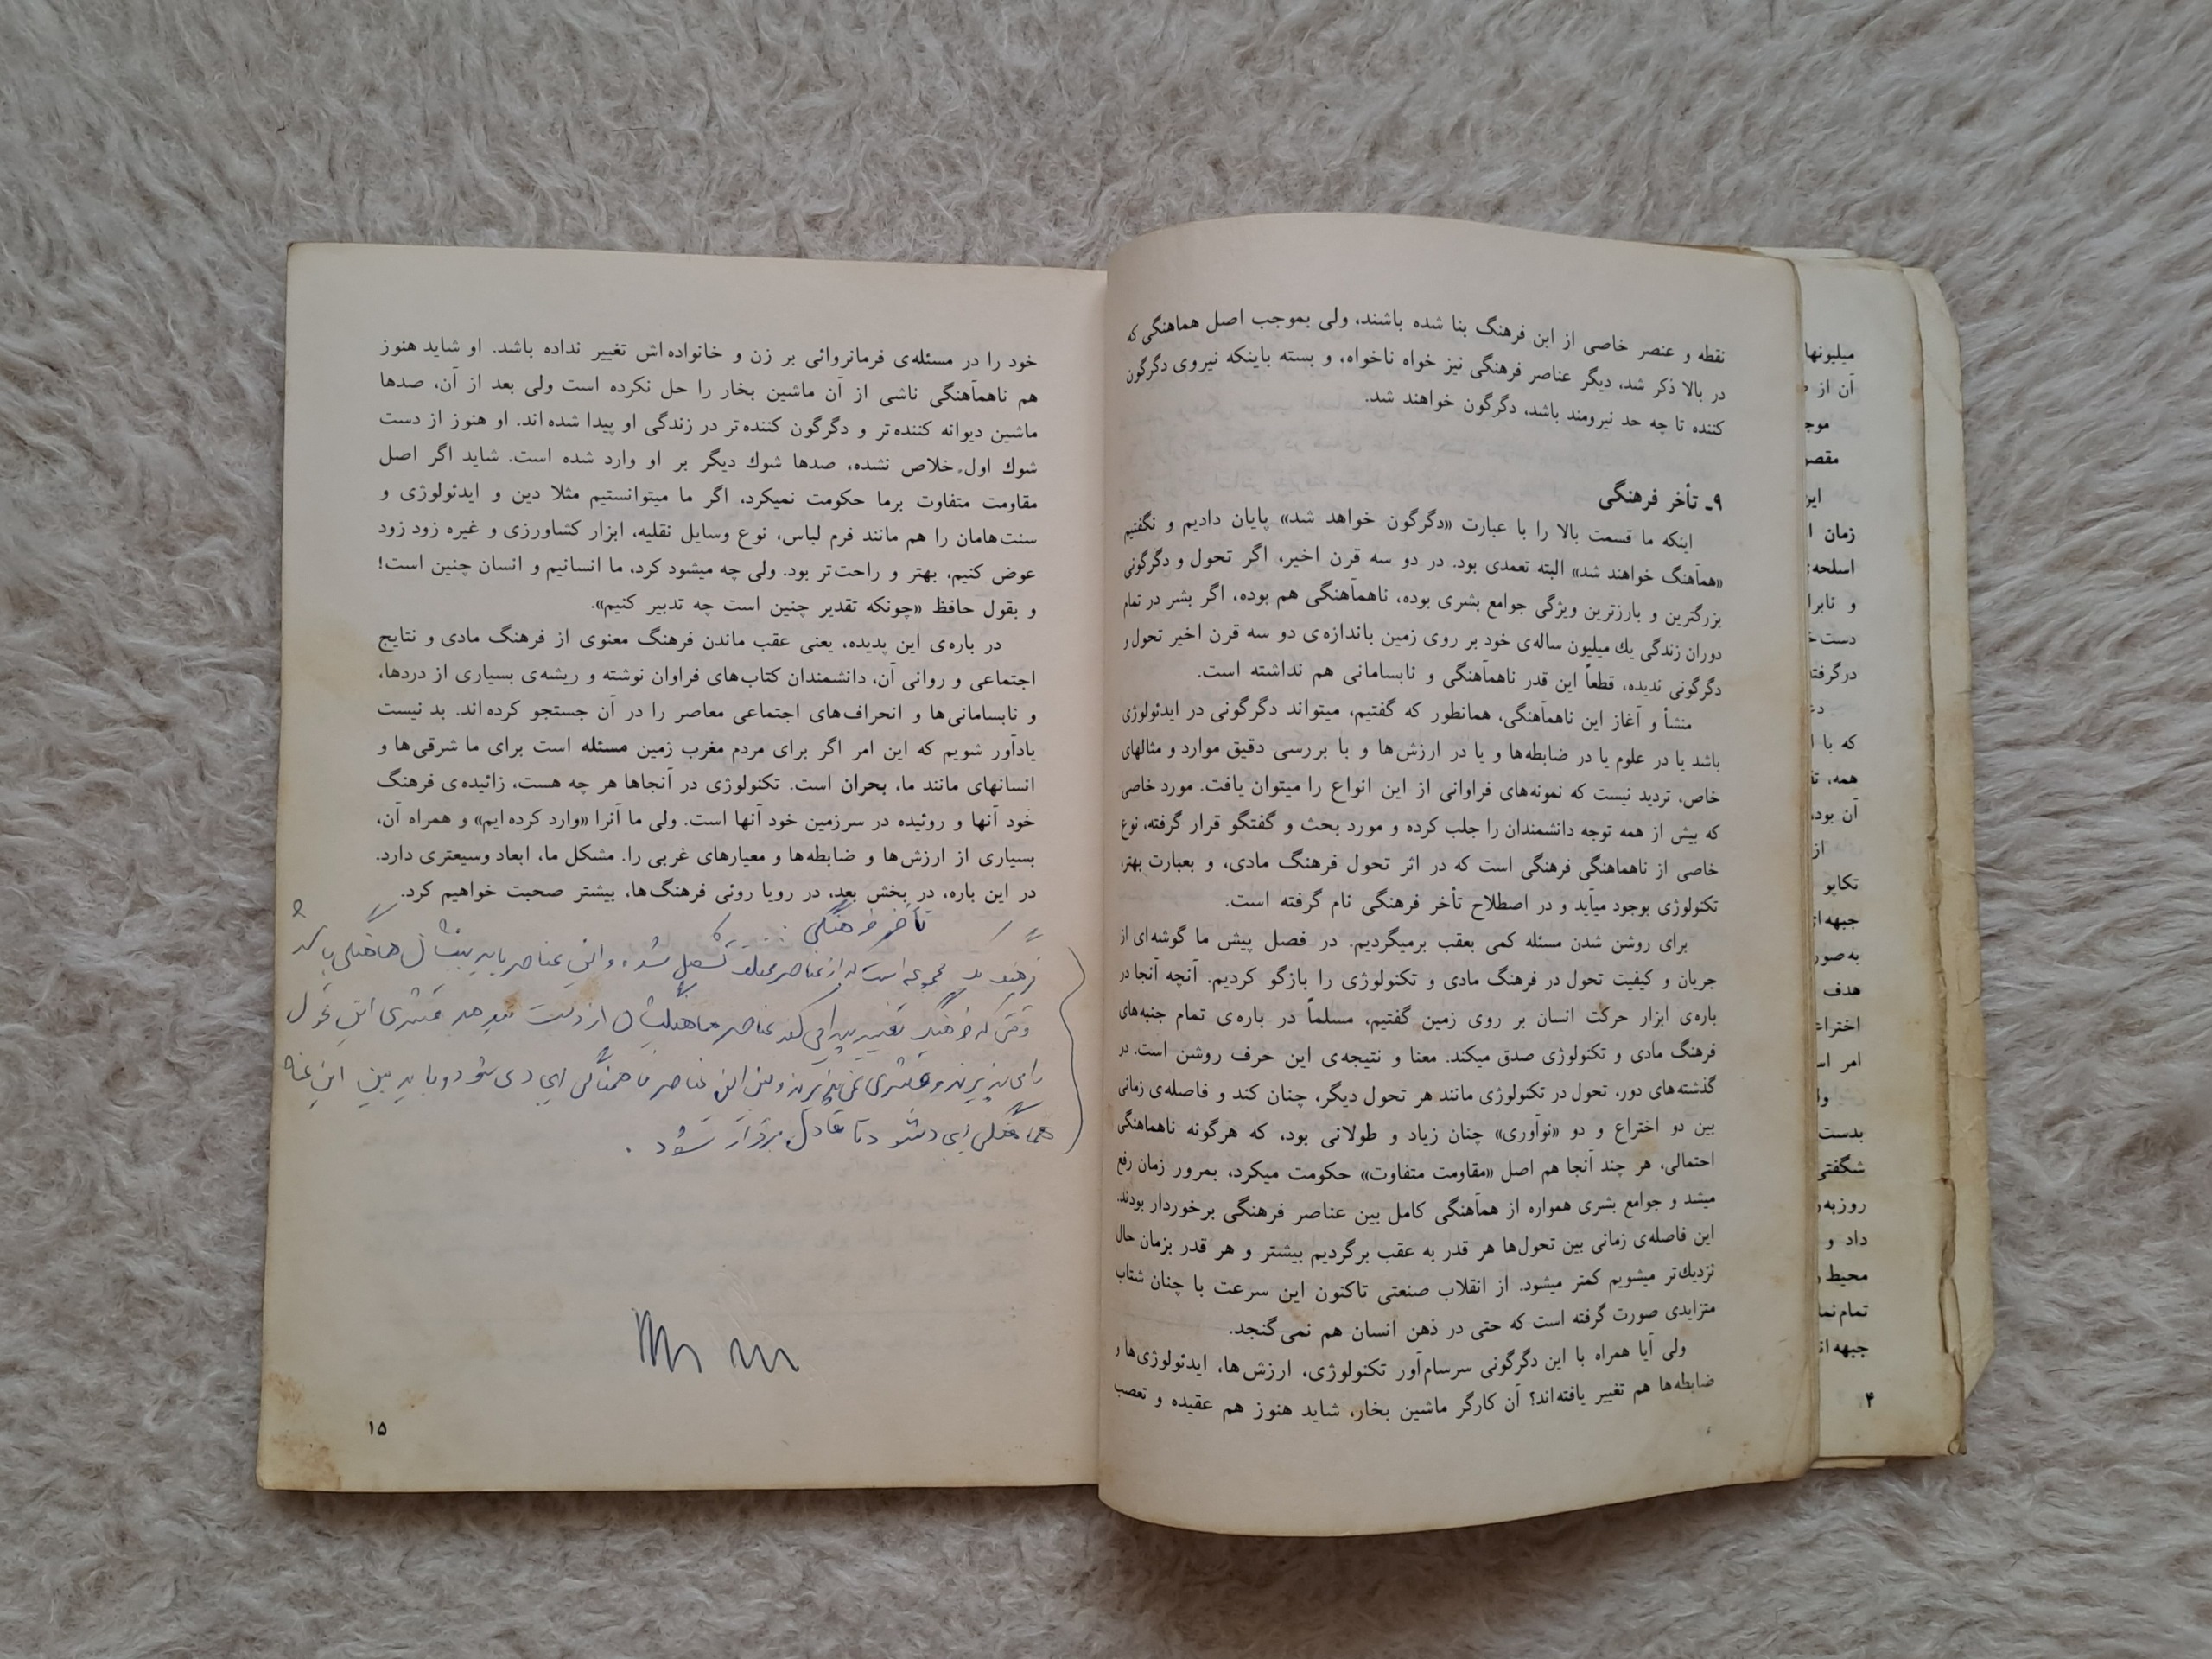 نقطه و عنصر خاصی از این فرهنگ بنا شده باشند، ولی بموجب اصل هماهنگی که
در بالا ذکر شد، دیگر عناصر فرهنگی نیز خواه ناخواه، و بسته باینکه نیروی دگرگون
کننده تا چه حد نیرومند باشد، دگرگون خواهند شد.
۹ـ تأخر فرهنگی
اینکه ما قسمت بالا را با عبارت «دگرگون خواهد شد» پایان دادیم و نگفتیم
«همآهنگ خواهند شد» البته تعمدی بود. در دو سه قرن اخیر، اگر تحول و دگرگونی
بزرگترین و بارزترین ویژگی جوامع بشری بوده، ناهمآهنگی هم بوده، اگر بشر در تمام
دوران زندگی یك میلیون ساله‌ی خود بر روی زمین باندازه‌ی دو سه قرن اخیر تحول و
دگرگونی ندیده، قطعاً این قدر ناهمآهنگی و نابسامانی هم نداشته است.
منشأ و آغاز این ناهمآهنگی، همانطور که گفتیم، میتواند دگرگونی در ایدئولوژی
باشد یا در علوم یا در ضابطه‌ها و یا در ارزش‌ها و با بررسی دقیق موارد و مثالهای
خاص، تردید نیست که نمونه‌های فراوانی از این انواع را میتوان یافت. مورد خاصی
که بیش از همه توجه دانشمندان را جلب کرده و مورد بحث و گفتگو قرار گرفته، نوع
خاصی از ناهماهنگی فرهنگی است که در اثر تحول فرهنگ مادی، و بعبارت بهتر،
تکنولوژی بوجود میآید و در اصطلاح تأخر فرهنگی نام گرفته است.
برای روشن شدن مسئله کمی بعقب برمیگردیم. در فصل پیش ما گوشه‌ای از
جریان و کیفیت تحول در فرهنگ مادی و تکنولوژی را بازگو کردیم. آنچه آنجا در
باره‌ی ابزار حرکت انسان بر روی زمین گفتیم، مسلماً در باره‌ی تمام جنبه‌های
فرهنگ مادی و تکنولوژی صدق میکند. معنا و نتیجه‌ی این حرف روشن است. در
گذشته‌های دور، تحول در تکنولوژی مانند هر تحول دیگر، چنان کند و فاصله‌ی زمانی
بین دو اختراع و دو «نوآوری» چنان زیاد و طولانی بود، که هرگونه ناهماهنگی
احتمالی، هر چند آنجا هم اصل «مقاومت متفاوت» حکومت میکرد، بمرور زمان رفع
میشد و جوامع بشری همواره از همآهنگی کامل بین عناصر فرهنگی برخوردار بودند.
این فاصله‌ی زمانی بین تحول‌ها هر قدر به عقب برگردیم بیشتر و هر قدر بزمان حال
نزدیك‌تر میشویم کمتر میشود. از انقلاب صنعتی تاکنون این سرعت با چنان شتاب
متزایدی صورت گرفته است که حتی در ذهن انسان هم نمی‌گنجد.
ولی آیا همراه با این دگرگونی سرسام‌آور تکنولوژی، ارزش‌ها، ایدئولوژی‌ها و
ضابطه‌ها هم تغییر یافته‌اند؟ آن کارگر ماشین بخار، شاید هنوز هم عقیده و تعصب
خود را در مسئله‌ی فرمانروائی بر زن و خانواده‌اش تغییر نداده باشد. او شاید هنوز
هم ناهمآهنگی ناشی از آن ماشین بخار را حل نکرده است ولی بعد از آن، صدها
ماشین دیوانه کننده‌تر و دگرگون کننده‌تر در زندگی او پیدا شده‌اند. او هنوز از دست
شوك اول خلاص نشده، صدها شوك دیگر بر او وارد شده است. شاید اگر اصل
مقاومت متفاوت برما حکومت نمیکرد، اگر ما میتوانستیم مثلا دین و ایدئولوژی و
سنت‌هامان را هم مانند فرم لباس، نوع وسایل نقلیه، ابزار کشاورزی و غیره زود زود
عوض کنیم، بهتر و راحت‌تر بود. ولی چه میشود کرد، ما انسانیم و انسان چنین است!
و بقول حافظ «چونکه تقدیر چنین است چه تدبیر کنیم».
در باره‌ی این پدیده، یعنی عقب ماندن فرهنگ معنوی از فرهنگ مادی و نتایج
اجتماعی و روانی آن، دانشمندان کتاب‌های فراوان نوشته و ریشه‌ی بسیاری از دردها،
و نابسامانی‌ها و انحراف‌های اجتماعی معاصر را در آن جستجو کرده‌اند. بد نیست
یادآور شویم که این امر اگر برای مردم مغرب زمین مسئله است برای ما شرقی‌ها و
انسانهای مانند ما، بحران است. تکنولوژی در آنجاها هر چه هست، زائیده‌ی فرهنگ
خود آنها و روئیده در سرزمین خود آنها است. ولی ما آنرا «وارد کرده‌ایم» و همراه آن،
بسیاری از ارزش‌ها و ضابطه‌ها و معیارهای غربی را. مشکل ما، ابعاد وسیعتری دارد.
در این باره، در بخش بعد، در رویا روئی فرهنگ‌ها، بیشتر صحبت خواهیم کرد.
تأخر فرهنگی :
فرهنگ یک مجموعه است که از عناصر مختلف تشکیل شده و این عناصر باید بینشان هماهنگی باشد
وقتی که فرهنگ تغییر پیدا می کند عناصر هماهنگیشان از دست میدهد قشری این تحول
را می پذیرند و قشری نمی پذیرند و بین این عناصر ناهمنگی ایجاد می شود و باید بین این
هماهنگی ایجاد شود تا تعادل برقرار شود .
۱۵
میلیونها
آن از
موج
مقصو
این
زمان
اسلحه
و نابرا
دست
درگرفته
که با
همه،
آن بود
از
تکاپو
جبهه
به صور
هدف
اختراع
امر
بدست
شگفتی
روزبه
داد و
محیط
تمام نما
جبهه
۴